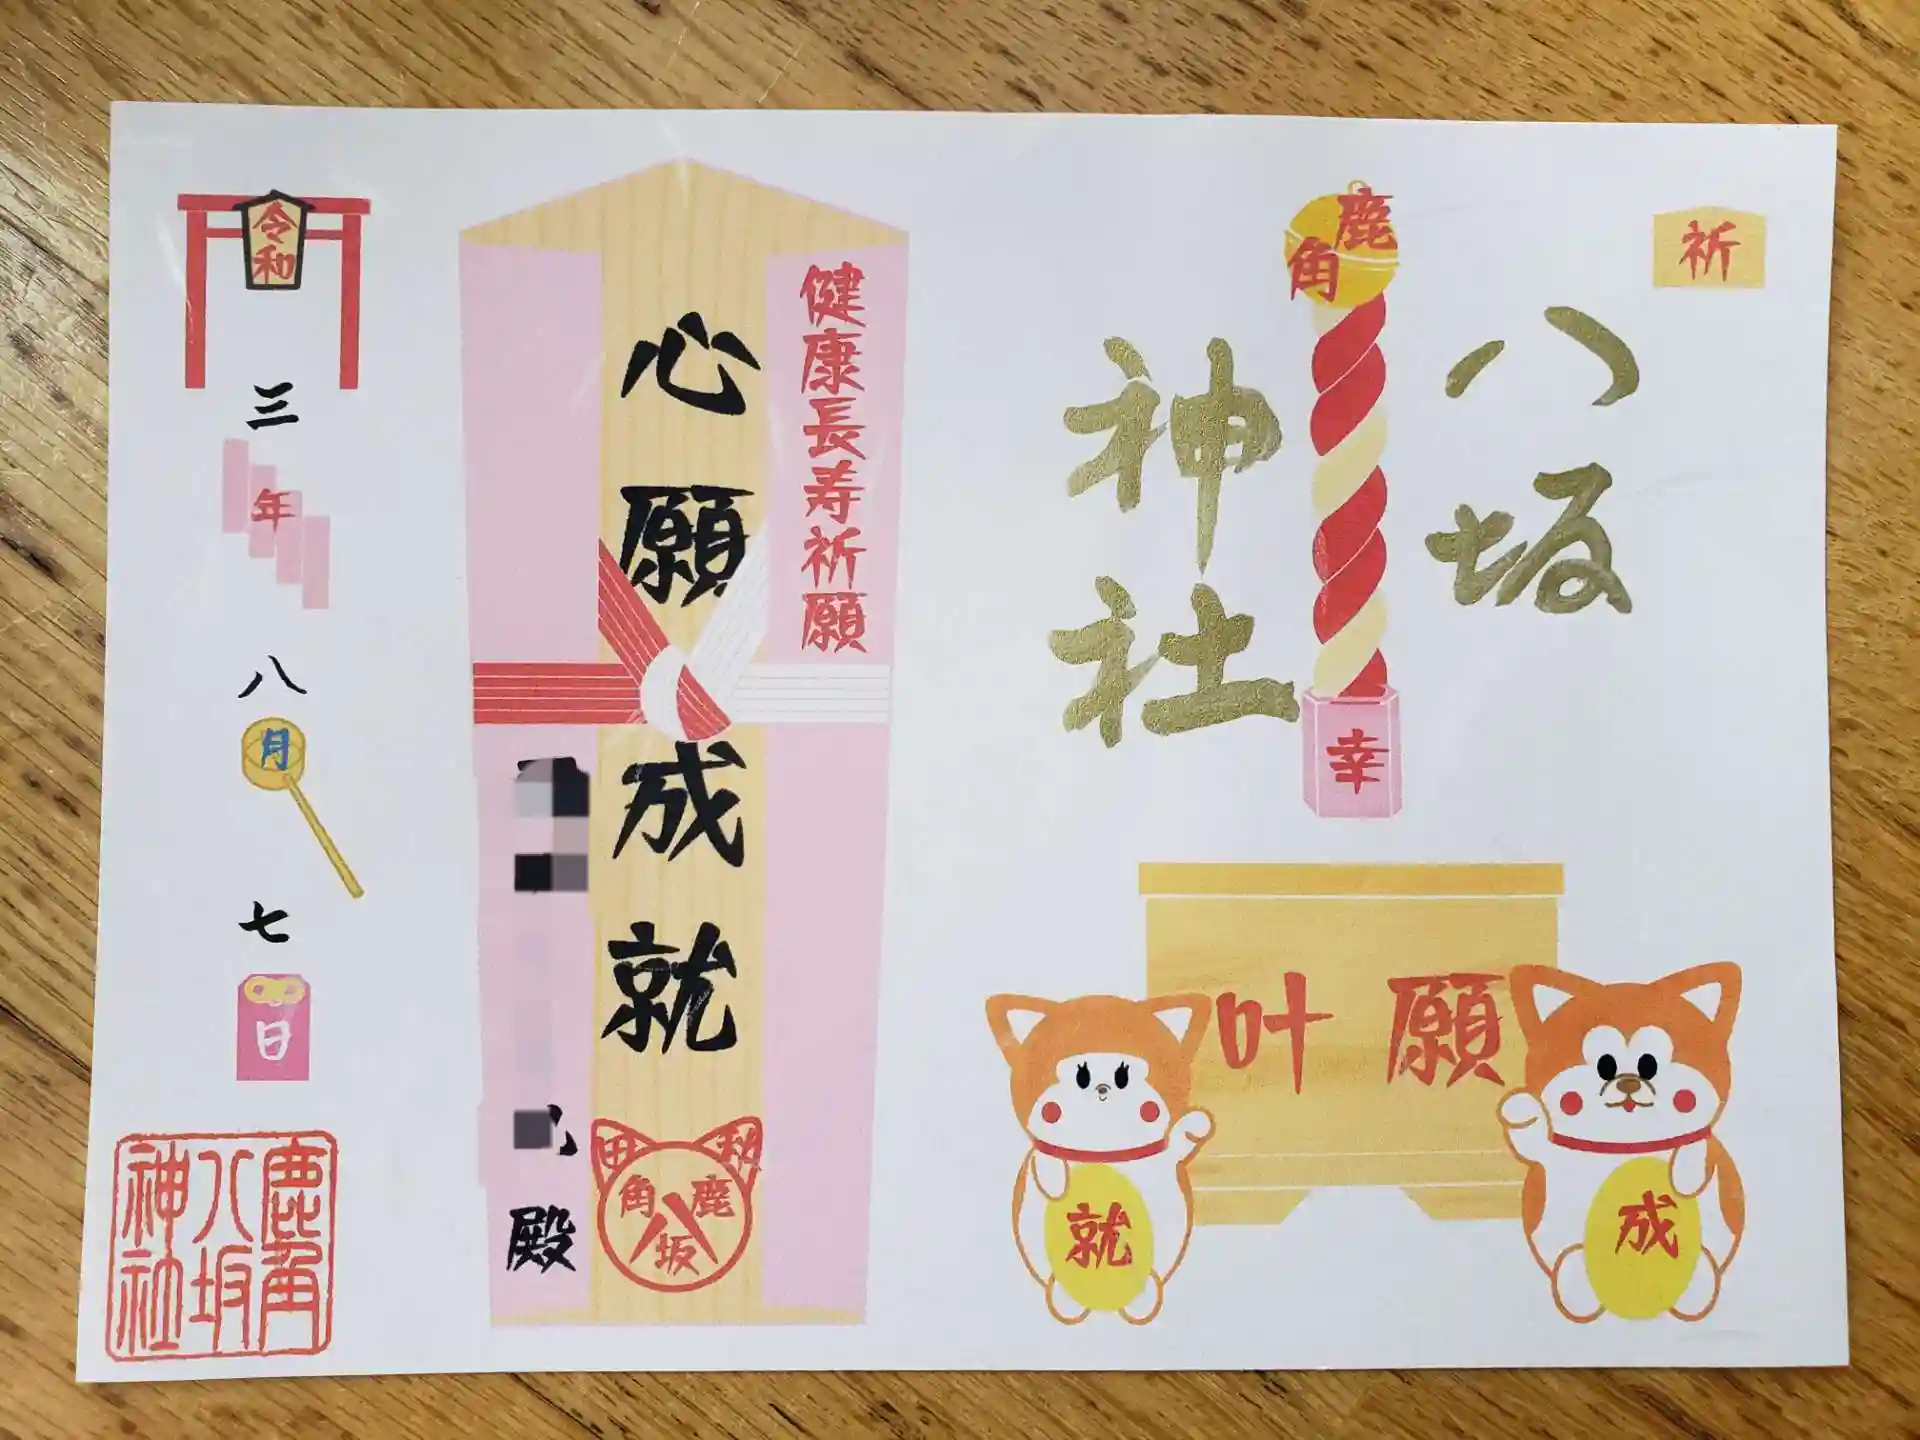 祈
八坂
鹿角
幸
神社
願叶
成
就
健康長寿祈願
心願成就
秋田
鹿角
八坂
殿
令和
三年八月七日
鹿角
八坂
神社